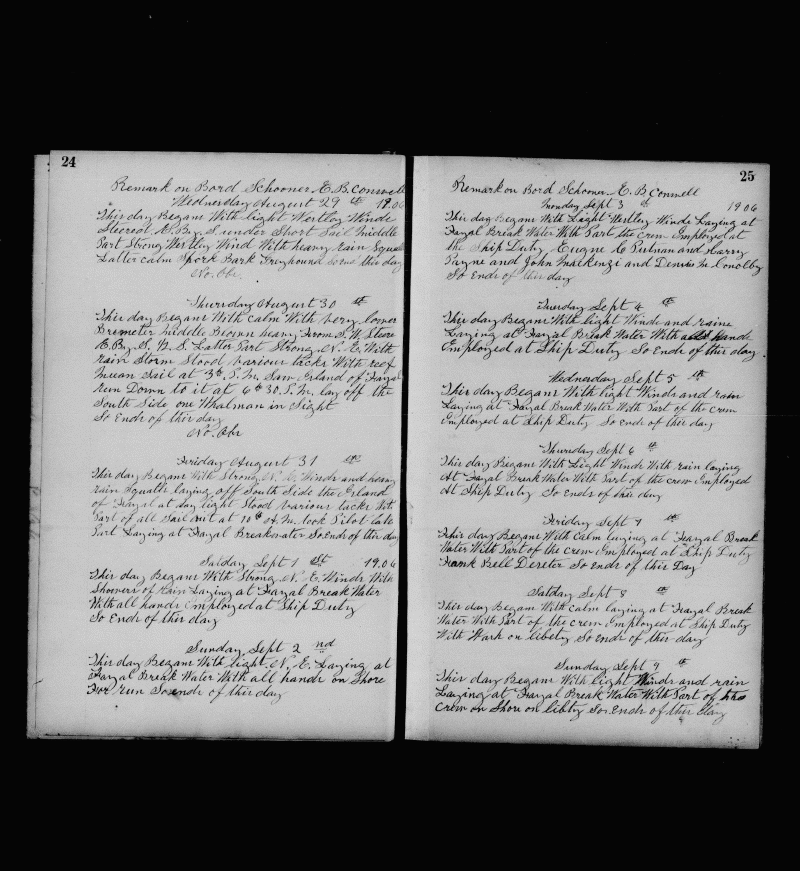 24
Remark on Bord Schooner E. B. Conwell
Wednesday August 29 th 1906
This day Began With light Westley Winds
Steered E. By S. under Short Sail Middle
Part Strong Westley Wind With heavy rain Squal
Latter calm Spork Bark Greyhound this day
No. Obs.
Thursday August 30 th
This day Begans With Calm With very lower
Bremeter Middle Blown heavy From S. W. Steer
E. By S. Latter Part Strong N. E. With
rain Storm Stood various tacks With reef
Mean Sail at 3h. P. M. Saw Island of Fayal
run Down to it at 6h 30. P. M. lay off the
South Side one Whalman in Sight
So Ends of this day
No. Obs
Friday August 31 st
This day Began With Strong N. E. Winds and heavy
rain Squalls laying off South Side the Island
of Fayal at day light Stood various tacks
Part of all Sail out at 10h A. M. took Pilot late
Part Laying at Fayal Breakwater So Ends of this day
Satday Sept 1 St 1906
This day Begans With Strong N. E. Winds With
Showers of Rain Laying at Fayal Break Water
With all hands Employed at Ship Duty
So Ends of this day
Sunday Sept 2 nd
This day Begans With light N. E. Laying at
Fayal Break Water With all hands on Shore
For run So ends of this day
25
Remark on Bord Schooner E. B Conwell
Monday Sept 3 1906
This day Begans With Light Westley Winds Laying at
Fayal Break Water With Part the Crew Employed at
the Ship Duty Eugne C Putnan and Harry
Payne and John Mackenzi and Dennis Mc Conolby
So Ends of this day
Tuesday Sept 4 th
This day Begans With light Winds and rain
Laying at Fayal Break Water With all Hands
Employed at Ship Duty So Ends of this day.
Wednesday Sept 5 th
This day Began With light Winds and rain
Laying at Fayal Break Water With Part of the Crew
Employed at Ship Duty So ends of this day
Thursday Sept 6 th
This day Began With Light Winds With rain laying
At Fayal Break Water With Part of the crew Employed
At Ship Duty So Ends of this day
Friday Sept 7 th
This day Began With Calm laying at Fayal Break
Water With Part of the crew Employed at Ship Duty
Frank Bell Dereter So Ends of this Day
Satday Sept 8 th
This day Began With calm laying at Fayal Break
Water With Part of the crew Employed at Ship Duty
With Wark on libety So Ends of this day
Sunday Sept 9 th
This day Began With light Winds and rain
Laying at Fayal Break Water With Part of the
Crew on Shore on libty So. Ends of this day